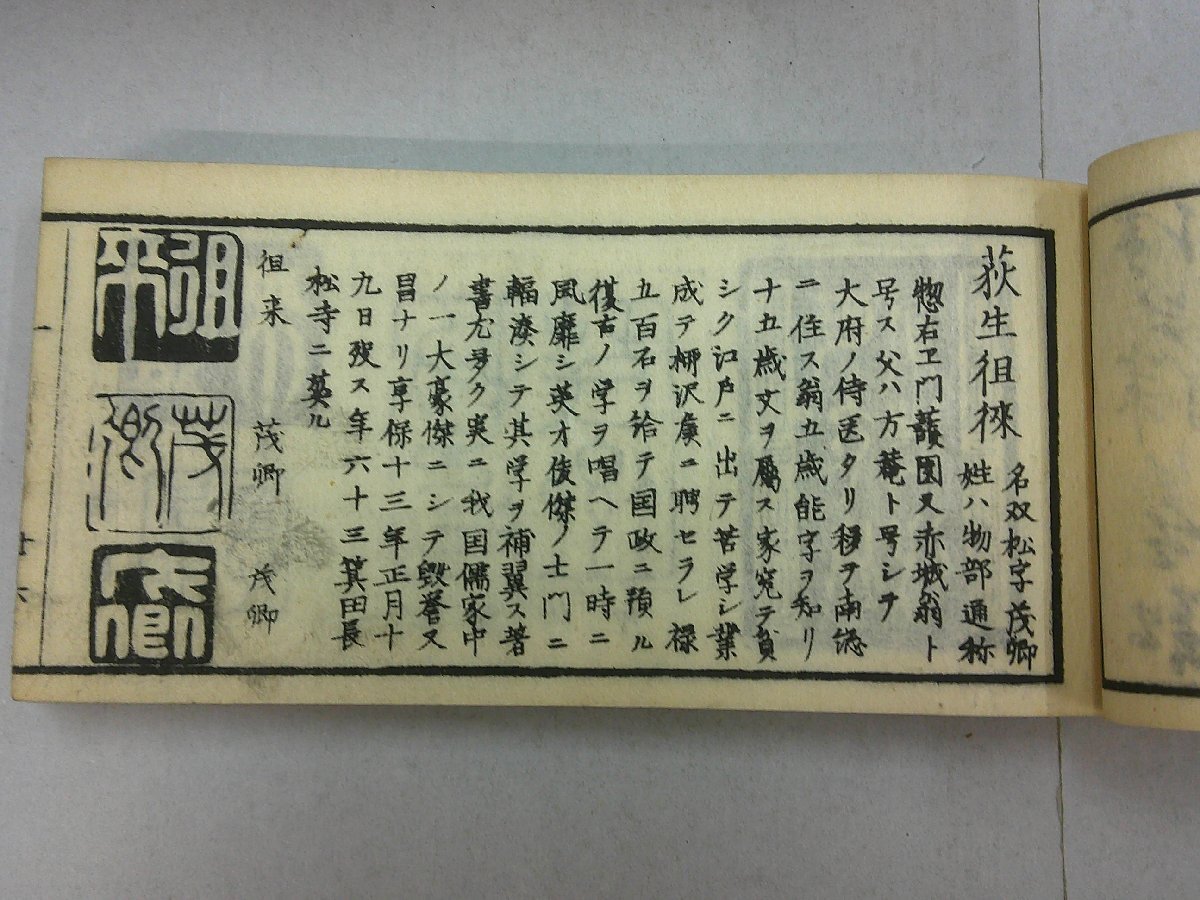 荻生徂徠
名双松字茂卿
姓ハ物部通称
惣右ヱ門蘐園又赤城翁ト
号ス父ハ方菴ト号シテ
大府ノ侍医タリ移ヲ南総
ニ住ス翁五歳能字ヲ知リ
十五歳文ヲ属ス家究テ貧
シク江戸ニ出テ苦学シ業
成テ柳沢矦ニ聘セラレ禄
五百石ヲ給テ国政ニ預ル
復古ノ学ヲ唱ヘテ一時ニ
風靡シ英才俊傑ノ士門ニ
輻湊シテ其学ヲ補翼ス著
書尤多ク実ニ我国儒家中
ノ一大豪傑ニシテ毀誉又
昌ナリ享保十三年正月十
九日歿ス年六十三箕田長
松寺ニ葬ル
徂来
茂卿
茂卿
徂来
茂卿